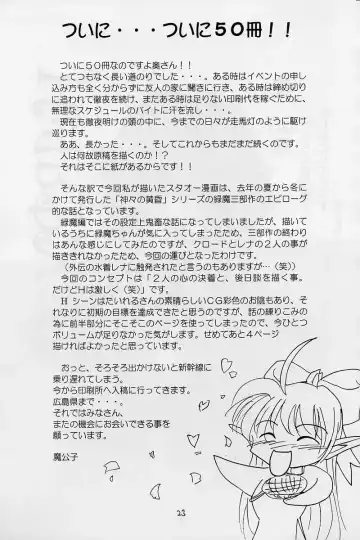 ついに・・・ついに５０冊！！
ついに５０冊なのですよ奥さん！！
とてつもなく長い道のりでした・・・。ある時はイベントの申し
込み方も全く分からずに友人の家に聞きに行き、ある時は締め切り
に追われて徹夜を続け、またある時は足りない印刷代を稼ぐために、
無理なスケジュールのバイトに汗を流し・・・。
現在も徹夜明けの頭の中に、今までの日々が走馬灯のように駆け
巡ります。
ああ、長かった・・・。そしてこれからもまだまだ続くのです。
人は何故原稿を描くのか！？
それはそこに紙があるからです！！
そんな訳で今回私が描いたスタオー漫画は、去年の夏から冬に
かけて発行した「神々の黄昏」シリーズの緑魔三部作のエピローグ
的な話となっています。
緑魔編ではその設定上鬼畜な話になってしまいましたが、描いて
いるうちに緑魔ちゃんが気に入ってしまったため、三部作の終わり
はあんな感じにしてみたのですが、クロードとレナの２人の事が
描ききれなかったため、今回の運びとなったわけです。
（外伝の水着レナに触発されたと言うのもありますが…（笑））
今回のコンセプトは「２人の心の決着と、後日談を描く事。
だけどＨは激しく（笑）」です。
Ｈ シーンはたいれるさんの素晴らしいＣＧ彩色のお陰もあり、そ
れなりに初期の目標を達成できたと思うのですが、話の練りこみの為
に前半部分にそこそこのページを使ってしまったので、今ひとつ
ボリュームが足りなかった気がします。せめてあと４ページ
描ければよかったと思っています。
おっと、そろそろ出かけないと新幹線に
乗り遅れてしまう。
今から印刷所へ入稿に行ってきます。
広島県まで・・・。
それではみなさん、
またの機会にお会いできる事を
願っています。
魔公子
23